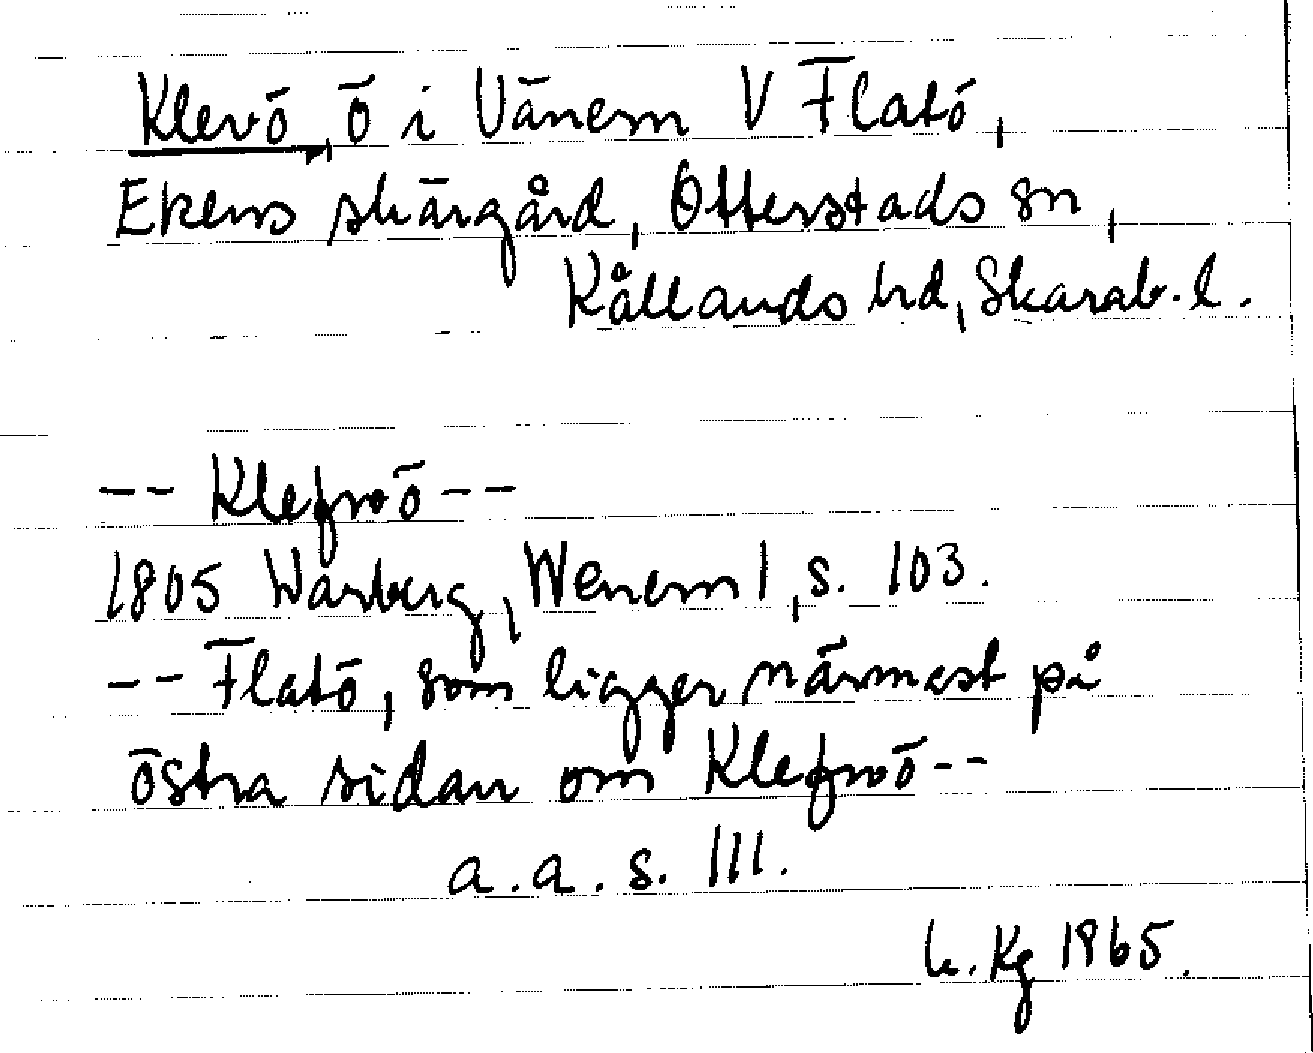 Klevö, ö i Vänern V Flatö,
Ekens skärgård, Otterstads sn,
Kållands hd, Skarab. l.
-- Klefwö --
1805 Warberg, Wenern 1, s. 103.
-- Flatö, som ligger närmast på
östra sidan om Klefwö --
a. a. s. 111.
L. Kg 1965.